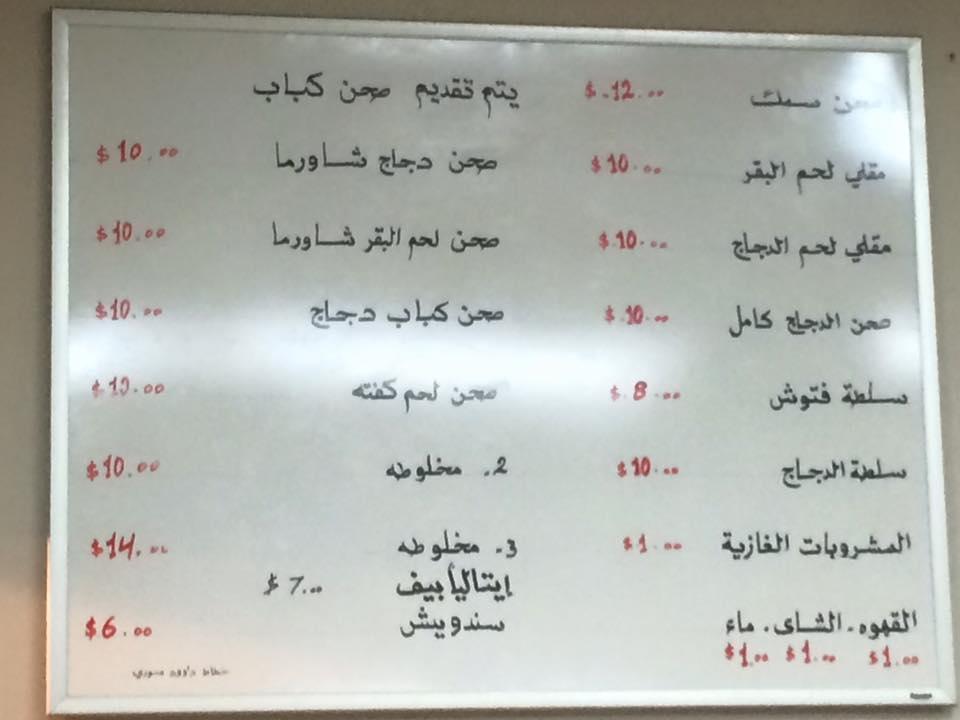 صحن سمك $ 12.00
مقلي لحم البقر $10.00
مقلي لحم الدجاج $10.00
صحن الدجاج كامل $10.00
سلطة فتوش $ 8.00
سلطة الدجاج $10.00
المشروبات الغازية $1.00
القهوه. الشاي. ماء
$1.00 $1.00 $1.00
يتم تقديم صحن كباب
صحن دجاج شاورما $10.00
صحن لحم البقر شاورما $10.00
صحن كباب دجاج $10.00
صحن لحم كفته $10.00
2. مخلوطه $10.00
3. مخلوطه $14.00
إيتاليأبيف $7.00
سندويش $6.00
خطاط داوود